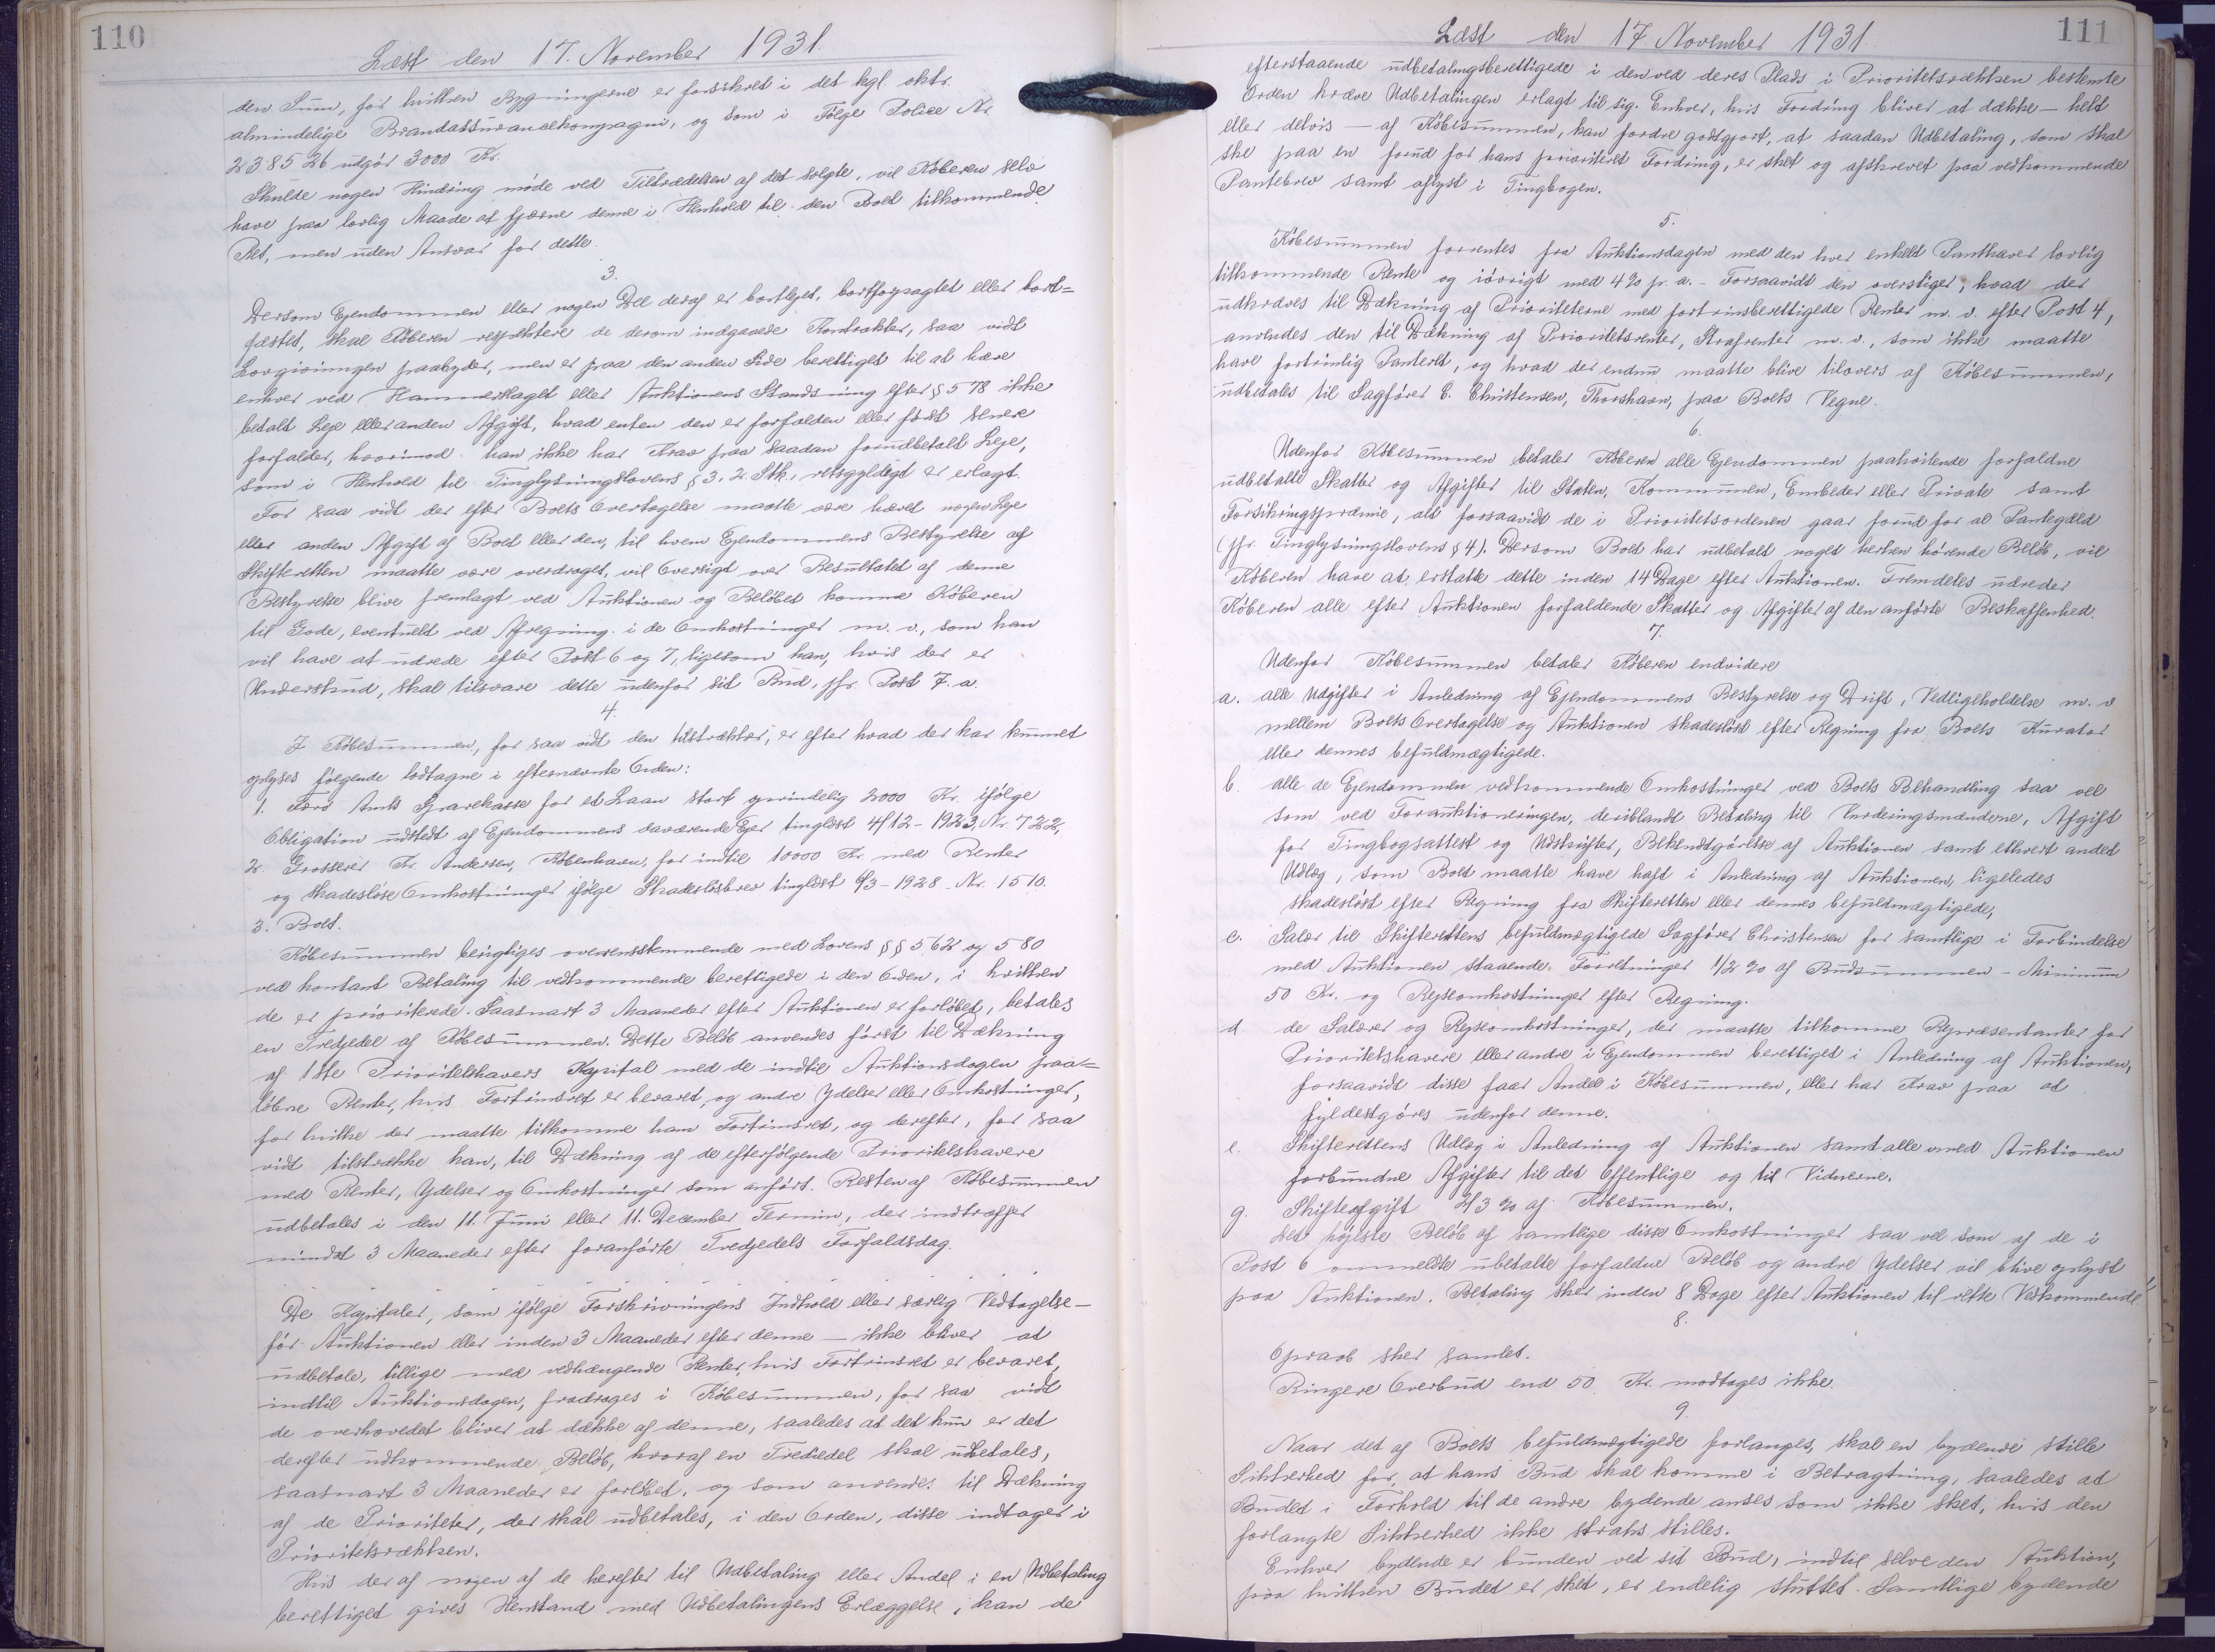 110
Læst den 17. November 1931.
den Sum, for hvilken Bygningerne er forsikret i det kgl. oktr.
almindelige Brandassurancekompagni, og som i Følge Police Nr.
238526 udgør 3000 Kr.
Skulde nogen Hindring møde ved Tiltrædelsen af det solgte, vil Køberen selv
have paa lovlig Maade at fjærne denne i Henhold til den Boet tilkommende
Ret, men uden Ansvar for dette.
3.
Dersom Ejendommen eller nogen Del deraf er bortlejet, bortforpagtet eller bort=
fæstet, skal Køberen respektere de derom indgaaede Kontrakter, saa vidt
Lovgivningen paabyder, men er paa den anden Side berettiget til at hæve
enhver ved Hammerslaget eller Auktionens Standsning efter § 578 ikke
betalt Leje eller anden Afgift, hvad enten den er forfalden eller først senere
forfalder, hvorimod han ikke har Krav paa saadan forudbetalt Leje,
som i Henhold til Tinglysningslovens § 3, 2. Stk., retsgyldigt er erlagt.
For saa vidt der efter Boets Overtagelse maatte være hævet nogen Leje
eller anden Afgift af Boet eller den, til hvem Ejendommens Bestyrelse af
Skifteretten maatte være overdraget, vil Oversigt over Resultatet af denne
Bestyrelse blive fremlagt ved Auktionen og Beløbet komme Køberen
til Gode, eventuelt ved Afregning i de Omkostninger m. v., som han
vil have at udrede efter Post 6 og 7, ligesom han, hvis der er
Underskud, skal tilsvare dette udenfor sit Bud, jfr. Post 7. a.
4.
I Købesummen, for saa vidt den tilstrækker, er efter hvad der har kunnet
oplyses følgende lodtagne i efternævnte Orden:
1. Færø Amts Sparekasse for et Laan stort oprindelig 2000 Kr. ifølge
Obligation udstedt af Ejendommens daværende Ejer tinglæst 4/12-1923, Nr. 722,
2. Grosserer Fr. Andersen, København, for indtil 10000 Kr. med Renter
og skadesløse Omkostninger ifølge Skadesløsbrev tinglæst 9/3-1928. Nr. 1510.
3. Boet.
Købesummen berigtiges overensstemmende med Lovens §§ 562 og 580
ved kontant Betaling til vedkommende berettigede i den Orden, i hvilken
de er prioriterede. Saasnart 3 Maaneder efter Auktionen er forløbet, betales
en Tredjedel af Købesummen. Dette Beløb anvendes først til Dækning
af 1ste Prioritetshavers Kapital med de indtil Auktionsdagen paa=
løbne Renter, hvis Fortrinsret er bevaret, og andre Ydelser eller Omkostninger,
for hvilke der maatte tilkomme ham Fortrinsret, og derefter, for saa
vidt tilstrække kan, til Dækning af de efterfølgende Prioritetshavere
med Renter, Ydelser og Omkostninger som anført. Resten af Købesummen
udbetales i den 11. Juni eller 11. December Termin, der indtræffer
mindst 3 Maaneder efter foranførte Tredjedels Forfaldsdag.
De Kapitaler, som ifølge Forskrivningens Indhold eller særlig Vedtagelse –
før Auktionen eller inden 3 Maaneder efter denne – ikke bliver at
udbetale, tillige med vedhængende Renter, hvis Fortrinsret er bevaret,
indtil Auktionsdagen, fradrages i Købesummen, for saa vidt
de overhovedet bliver at dække af denne, saaledes at det kun er det
derefter udkommende Beløb, hvoraf en Trediedel skal udbetales,
saasnart 3 Maaneder er forløbet, og som anvendes til Dækning
af de Prioriteter, der skal udbetales, i den Orden, disse indtager i
Prioritetsrækken.
Hvis der af nogen af de herefter til Udbetaling eller Andel i en Udbetaling
berettiget gives Henstand med Udbetalingens Erlæggelse, kan de
111
Læst den 17. November 1931
efterstaaende udbetalingsberettigede i den ved deres Plads i Prioritetsrækken bestemte
Orden kræve Udbetalingen erlagt til sig. Enhver, hvis Fordring bliver at dække – helt
eller delvis – af Købesummen, kan fordre godtgjort, at saadan Udbetaling, som skal
ske paa en forud for hans prioriteret Fordring, er sket og afskrevet paa vedkommende
Pantebrev samt aflyst i Tingbogen.
5.
Købesummen forrentes fra Auktionsdagen med den hver enkelt Panthaver lovlig
tilkommende Rente og iøvrigt med 4% pr. a. – Forsaavidt den overstiger, hvad der
udkræves til Dækning af Prioriteterne med fortrinsberettigede Renter m. v. efter Post 4,
anvendes den til Dækning af Prioritetsrenter, Strafrenter m. v., som ikke maatte
have fortrinlig Panteret, og hvad der endnu maatte blive tilovers af Købesummen,
udbetales til Sagfører C. Christensen, Thorshavn, paa Boets Vegne.
6.
Udenfor Købesummen betaler Køberen alle Ejendommen paahvilende forfaldne
udbetalte Skatter og Afgifter til Staten, Kommunen, Embeder eller Private samt
Forsikringspræmie, alt forsaavidt de i Prioritetsordenen gaar forud for al Pantegæld
(jfr. Tinglysningslovens § 4). Dersom Boet har udbetalt noget herhen hørende Beløb, vil
Køberen have at erstatte dette inden 14 Dage efter Auktionen. Fremdeles udreder
Køberen alle efter Auktionen forfaldende Skatter og Afgifter af den anførte Beskaffenhed.
7.
Udenfor Købesummen betaler Køberen endvidere
a. alle Udgifter i Anledning af Ejendommens Bestyrelse og Drift, Vedligeholdelse m. v.
mellem Boets Overtagelse og Auktionen skadesløst efter Regning fra Boets Kurator
eller dennes befuldmægtigede.
b. alle de Ejendommen vedkommende Omkostninger ved Boets Behandling saa vel
som ved Forauktioneringen, deriblandt Betaling til Vurderingsmændene, Afgift
for Tingbogsattest og Udskrifter, Bekendtgørelse af Auktionen samt ethvert andet
Udlæg, som Boet maatte have haft i Anledning af Auktionen, ligeledes
skadesløst efter Regning fra Skifteretten eller dennes befuldmægtigede,
c. Salær til Skifterettens befuldmægtigede Sagfører Christensen for samtlige i Forbindelse
med Auktionen staaende Forretninger 1/2 % af Budsummen – Minimum
50 Kr. og Rejseomkostninger efter Regning.
d de Salærer og Rejseomkostninger, der maatte tilkomme Repræsentanter for
Prioritetshavere eller andre i Ejendommen berettiget i Anledning af Auktionen,
forsaavidt disse faar Andel i Købesummen, eller har Krav paa at
fyldestgøres udenfor denne.
e. Skifterettens Udlæg i Anledning af Auktionen samt alle med Auktionen
forbundne Afgifter til det Offentlige og til Vidnerne.
g. Skifteafgift 2/3 % af Købesummen.
Det højeste Beløb af samtlige disse Omkostninger saa vel som af de i
Post 6 ommeldte ubetalte forfaldne Beløb og andre Ydelser vil blive oplyst
paa Auktionen. Betaling sker inden 8 Dage efter Auktionen til rette Vedkommende.
8.
Opraab sker samlet.
Ringere Overbud end 50 Kr. modtages ikke.
9.
Naar det af Boets befuldmægtigede forlanges, skal en bydende stille
Sikkerhed for, at hans Bud skal komme i Betragtning, saaledes at
Budet i Forhold til de andre bydende anses som ikke sket, hvis den
forlangte Sikkerhed ikke straks stilles.
Enhver bydende er bunden ved sit Bud, indtil selve den Auktion,
paa hvilken Budet er sket, er endelig sluttet. Samtlige bydende